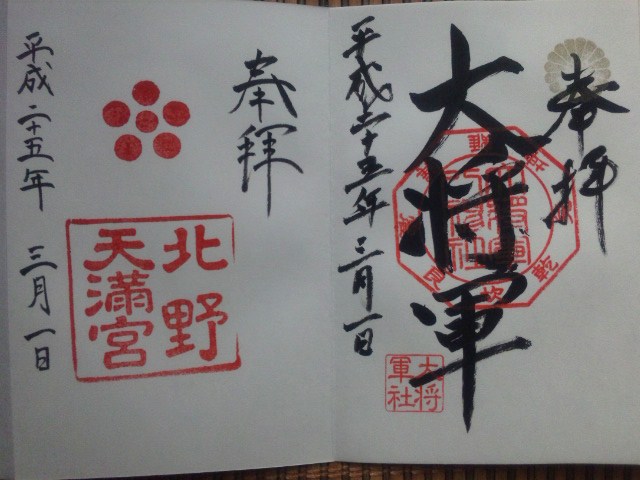 奉拝
大将軍
平成二十五年 三月一日
大将
軍社
奉拜
北野
天満宮
平成二十五年 三月一日